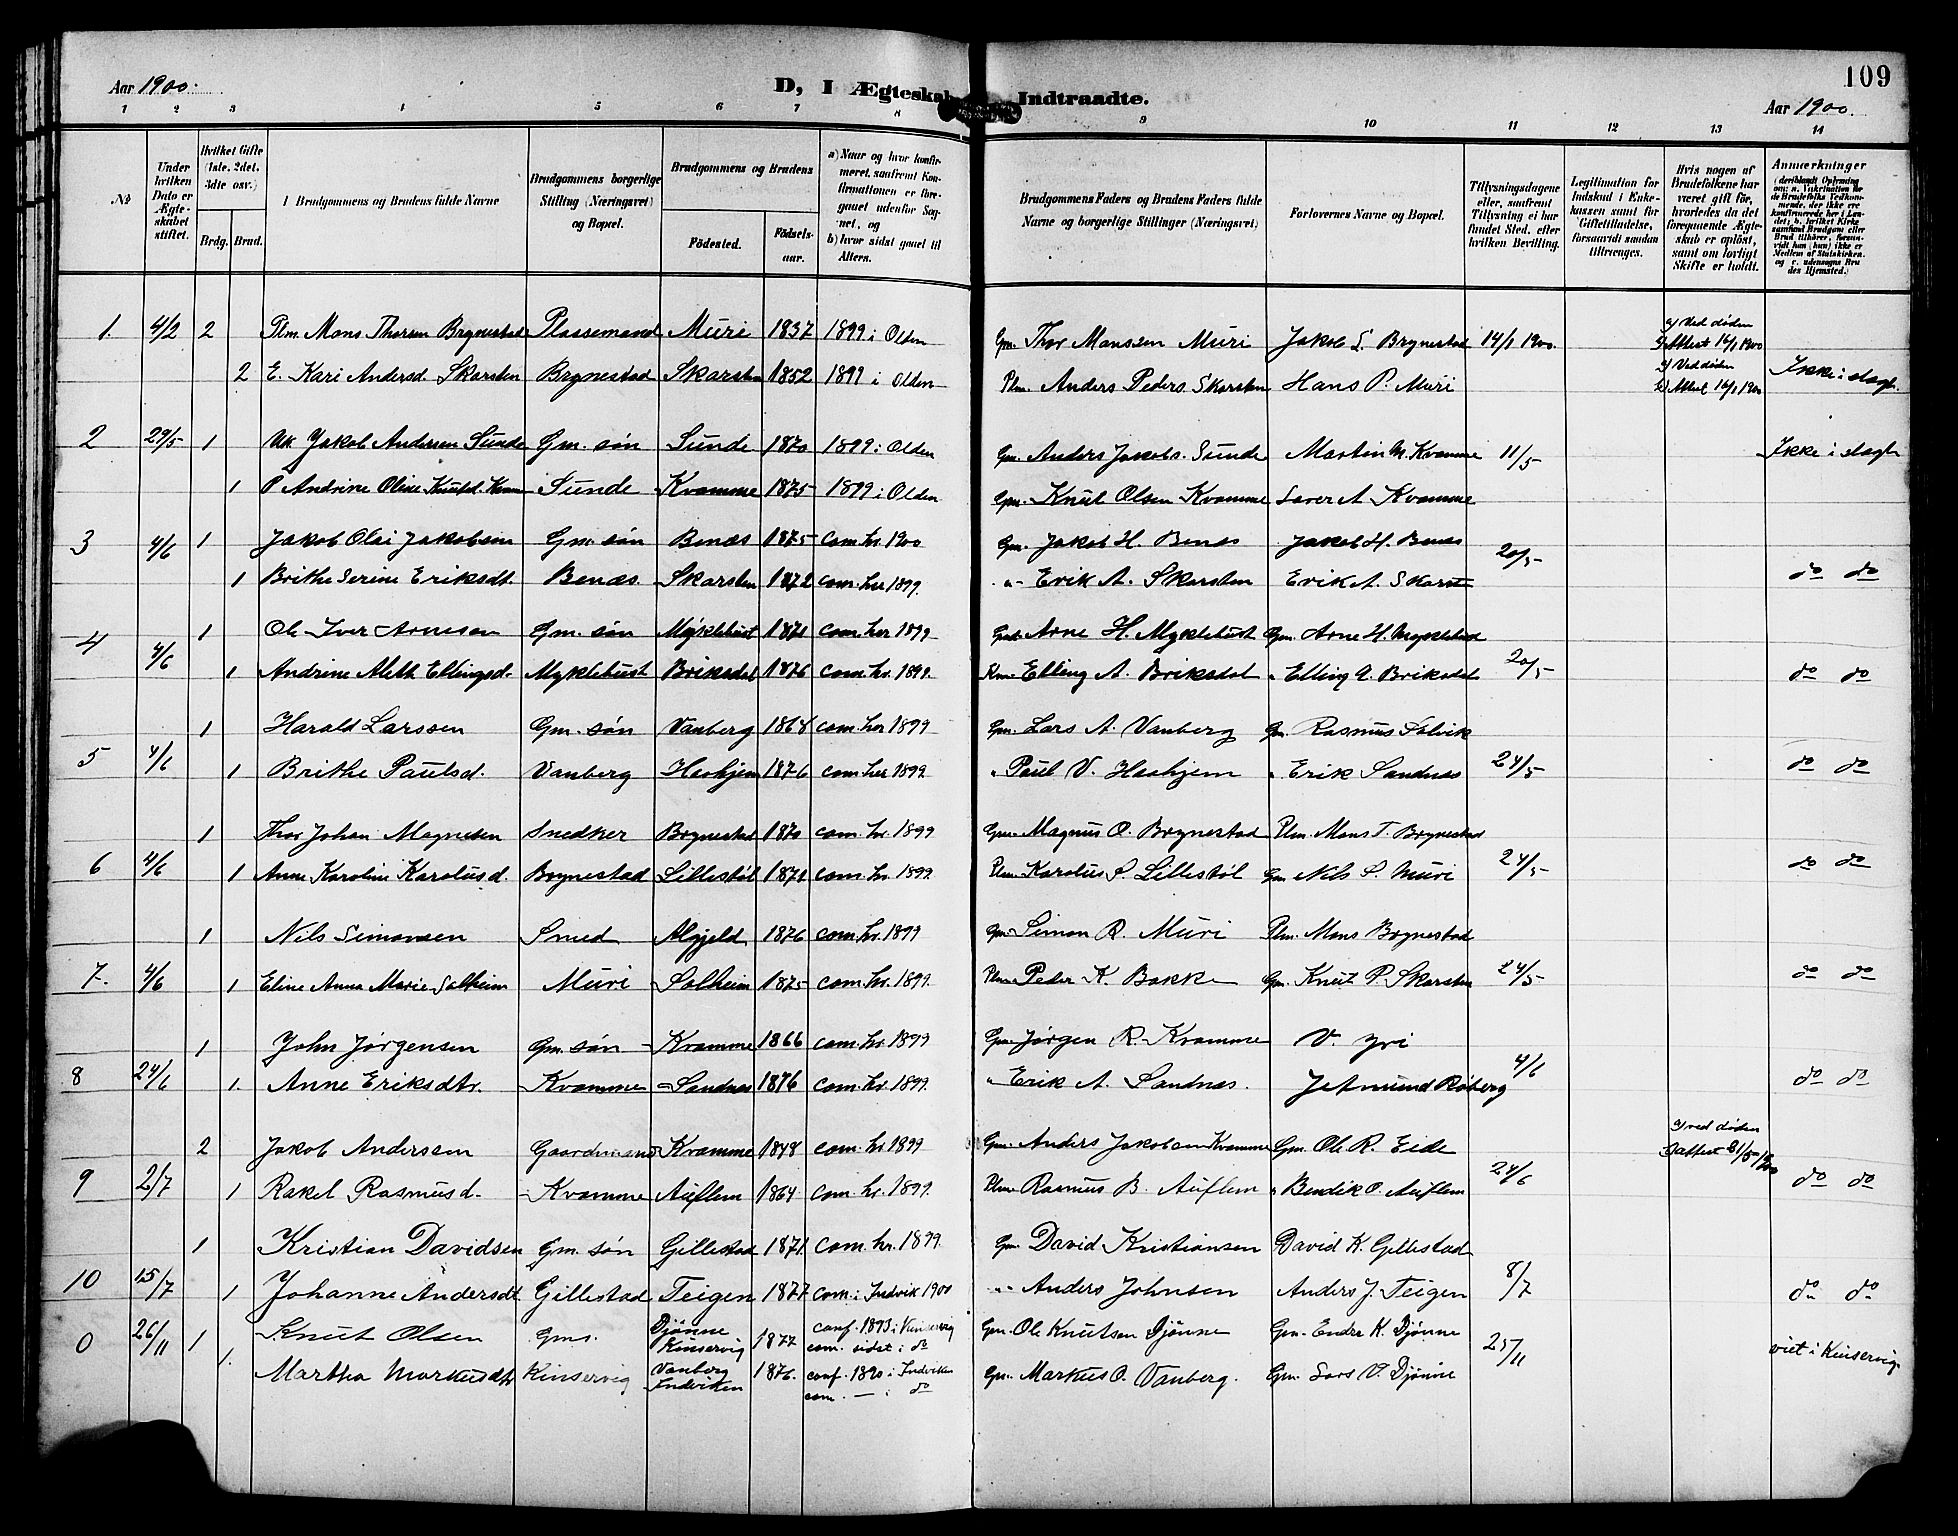 109
Aar 1900.
D, I Ægteskab Indtraadte.
Aar 1900.
1 2 3 4 5 6 7 8 9 10 11 12 13 14
No
Under hvilken Dato er Ægteskabet stiftet.
Hvilket Gifte (1ste, 2det, 3die osv.)
Brdg. Brud.
Brudgommens og Brudens fulde Navne
Brudgommens borgerlige Stilling (Næringsvei) og Bopæl.
Brudgommens og Brudens
Fødested.
Fødselsaar.
a) Naar og hvor konfirmeret, saafremt Konfirmationen er foregaaet udenfor Sognet, og
b) hvor sidst gaaet til Alters.
Brudgommens Faders og Brudens Faders fulde Navne og borgerlige Stillinger (Næringsvei)
Forlovernes Navne og Bopæl.
Tillysningsdagene eller, saafremt Tillysning ei har fundet Sted, efter hvilken Bevilling.
Legitimation for Indskud i Enkekassen samt for Giftetilladelse, forsaavidt saadan tiltrænges.
Hvis nogen af Brudefolkene har været gift før, hvorledes da det foregaaende Ægteskab er opløst, samt om lovligt Skifte er holdt.
Anmærkninger
1. 4/2 2 Plm. Mons Thorsen Brynestad Plassemand Muri 1837 1899 i Olden Gm. Thor Monssen Muri Jakob S. Brynestad 14/1 1900. a) Ved døden b) Attest 16/1 1900
2 E. Kari Andersd. Skarsten Brynestad Skarsten 1852 1899 i Olden Plm Anders Peders. Skarsten Hans P. Muri a) Ved døden b) Attest 16/1 1900 Ikke i slagt.
2 29/5 1 Uk Jakob Andersen Sunde Gm. søn Sunde 1870 1899 i Olden Gm. Anders Jakobs. Sunde Martin M. Kvamme 11/5 Ikke i slagt
1 P Andrine Oline Knutsd. Sunde Kvamme 1875 1899 i Olden Gm. Knut Olsen Kvamme A. Kvamme
3 4/6 1 Jakob Olai Jakobsen Gm. søn Benæs 1875 Com. hr. 1900 Gm. Jakob H. Benæs Jakob H. Benæs 20/5
1 Brithe Serine Eriksdt. Benæs Skarsten 1872 com. her 1899. " Erik A. Skarsten Erik A. Skarst do do
4 4/6 1 Ole Iver Arnesen Gm. søn Myklebust 1871 com. her 1899 Arne H. Myklebust Gm. Arne H. Myklebust
1 Andrine Aleth Ellingsd. Myklebust Briksdal 1876 com. hr. 1899. Elling A. Briksdal " Elling A. Briksdal 20/5 do do
5 4/6 1 Harald Larssen Gm. søn Vanberg 1868 com. her 1899 Gm. Lars A. Vanberg Gm. Rasmus Solvik
1 Brithe Paulsd. Vanberg Haahjem 1876 com. her 1899. " Paul V. Haahjem " Erik Sandnæs 24/5 do do
6 4/6 1 Thor Johan Magnesen Snedker Brynestad 1870 com. hr. 1899 Gm. Magnus O. Brynestad Plm. Mons T. Brynestad
1 Anne Karoline Karolusd. Brynestad Lillestøl 1871 com. hr. 1899. Plm. Karolus P. Lillestøl Gm. Nils S. Muri 24/5 do do
7. 4/6 1 Nils Simonsen Smed Algjeld 1876 com. hr. 1899 Gm. Simon R. Muri Plm. Mons Brynestad
1 Eline Anna Marie Solheim Muri Solheim 1875 com. hr. 1899. Plm Peder K. Bakke Gm. Knut P. Skarsten 24/5 do do
8 24/6 1 John Jørgensen Gm. søn Kvamme 1866 com. hr. 1899 Gm. Jørgen R. Kvamme V. Yri
1. Anne Eriksdtr. Kvamme Sandnes 1876 com. hr. 1899. " Erik A. Sandnæs. Jetmund Røberg 4/6 do do
9 2/7 2 Jakob Anderssen Gaardmand Kvamme 1848 com. hr. 1899 Gm. Anders Jakobsen Kvamme Gm. Ole R. Eide a) ved døden b) attest 21/5 1900
1 Rakel Rasmusd. Kvamme Auflem 1864 com. hr. 1899. Plm. Rasmus B. Auflem " Bendik O. Auflem 24/6 do do
10 15/7 1 Kristian Davidsen Gm. søn Gillestad 1871 com. hr. 1899. Gm. David Kristiansen David K. Gillestad
1 Johanne Andersdt Gillestad Teigen 1877 com. i Indvik 1900 " Anders Johnsen Anders J. Teigen 8/7 do do
0 26/11 1 Knut Olsen Gms. Djønne Kinservig 1877 conf. 1893 i Kinservig com. sidst i do Gm. Ole Knutsen Djønne Gm. Endre K. Djønne 25/11 viet i Kinservig.
1. Martha Markusdtr Kinservig Vanberg Indviken 1876. conf. 1890 i Indviken com. — i do Gm. Markus O. Vanberg. Gm. Lars V. Djønne